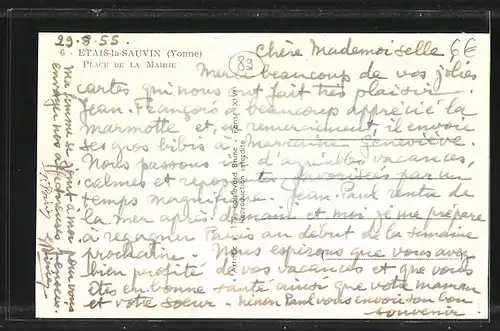 29-8-55.
6 - ETAIS-la-SAUVIN (Yonne)
PLACE DE LA MAIRIE
89
6€
Chère Mademoiselle
Merci beaucoup de vos jolies
cartes qui nous ont fait très plaisir.
Jean-François a beaucoup apprécié la
marmotte et, en remerciement, il envoie
ses gros bibis à marraine Geneviève.
Nous passons ici d'agréables vacances,
calmes et reposantes favorisées par un
temps magnifique. Jean-Paul rentre de
la mer après demain et moi je me prépare
à regagner Paris au début de la semaine
prochaine. Nous espérons que vous avez
bien profité de vos vacances et que vous
êtes en bonne santé ainsi que votre maman
et votre soeur. Paul vous envoie son bon
souvenir.
Ma femme se joint à moi pour vous
envoyer nos affectueuses pensées.
Boulevard Brune - Paris (XIVe)
Reproduction interdite